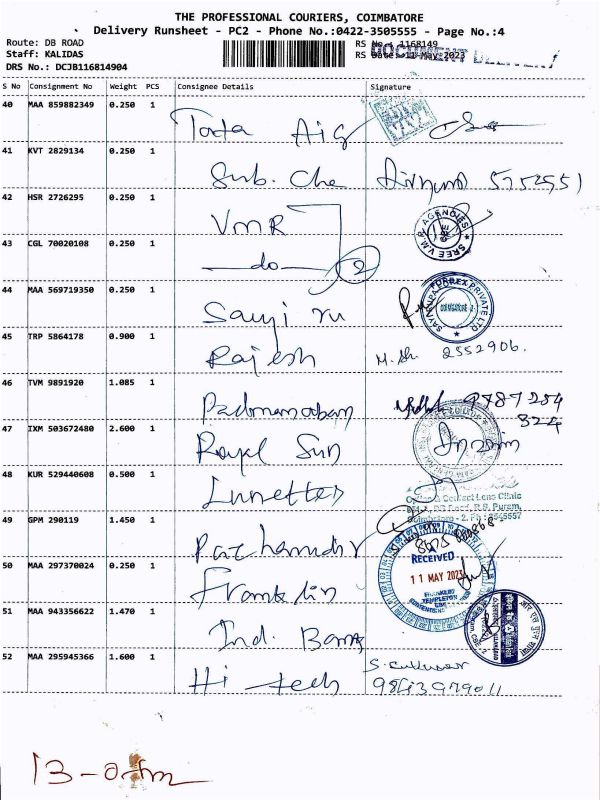 THE PROFESSIONAL COURIERS, COIMBATORE
Delivery Runsheet - PC2 - Phone No.:0422-3505555 - Page No.:4
Route: DB ROAD RS No.: 1168149
Staff: KALIDAS RS Date: 11-May-2023
DRS No.: DCJB116814904
S No Consignment No Weight PCS Consignee Details Signature
40 MAA 859882349 0.250 1 Tata Aig
41 KVT 2829134 0.250 1 Sub. Che 5752551
42 HSR 2726295 0.250 1 VMR
SREE V.M.R. AGENCIES
43 CGL 70020108 0.250 1 do 2
44 MAA 569719350 0.250 1
PRIVATE LTD
45 TRP 5864178 0.900 1 Rajesh 2552906.
46 TVM 9891920 1.085 1 Padmanaban 9787254
824
47 IXM 503672480 2.600 1 Royal Sun
48 KUR 529440608 0.500 1 Lunettes
Contact Lens Clinic
R.S. Puram,
49 GPM 290119 1.450 1
50 MAA 297370024 0.250 1 Franklin
RECEIVED
11 MAY 2023
FRANKLIN
TEMPLETON
51 MAA 943356622 1.470 1 Ind. Bank
52 MAA 295945366 1.600 1 Hi-tech
9843979011